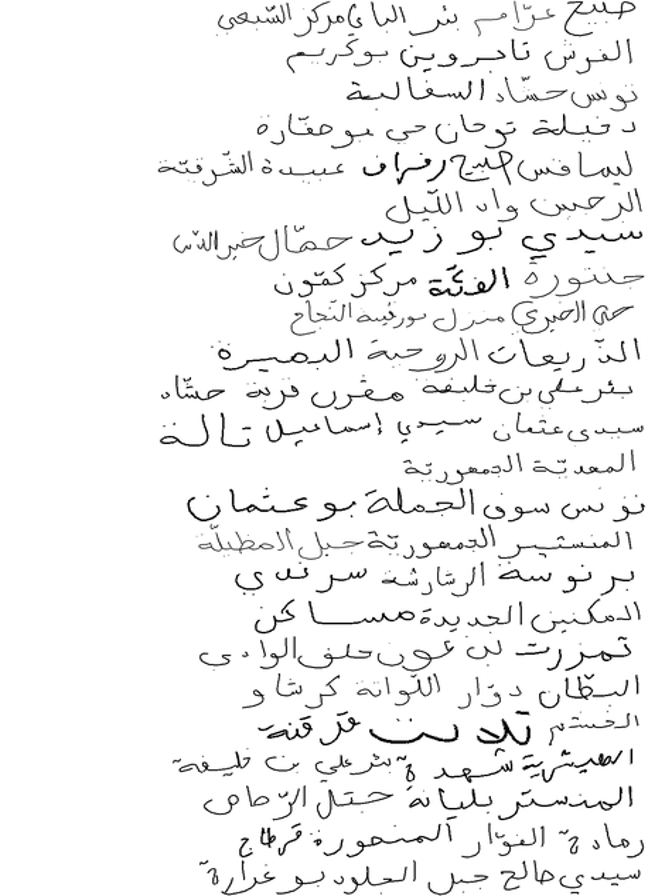 خليج عرّام بئر الباي مركز الشبعي
الفرش تاجروين بوكريم
تونس حشّاد السفالية
دخيلة توجان حي بوحفّارة
ليماقس خليج رفراف عبيدة الشرقيّة
الرحمين واد اللّيل
سيدي بوزيد حمّال خير الدّين
جنتورة الفئة مركز كمّون
حيّ الخيري منزل بورقيبة النجاح
الذّريعات الروحية البصيرة
بئر علي بن خليفة مقرن قرية حشّاد
سيدي عثمان سيدي إسماعيل تالة
المعديّة الجمهوريّة
تونس سوق الجملة بوعثمان
المنستير الجمهوريّة جبل المظيلّة
برنوسة الرشارشة سرندي
المكنين الجديدة مساكن
تمزرت بن عون حلق الوادي
البطّان دوّار اللّواتة كرشاو
الخشم تلابت قرقنة
الهيشرية شهدة بئر علي بن خليفة
المنستير بليانة جبل الرّصاص
رمادة الفوّار المنصورة قرطاج
سيدي صالح جبل الجلود بوغرارة